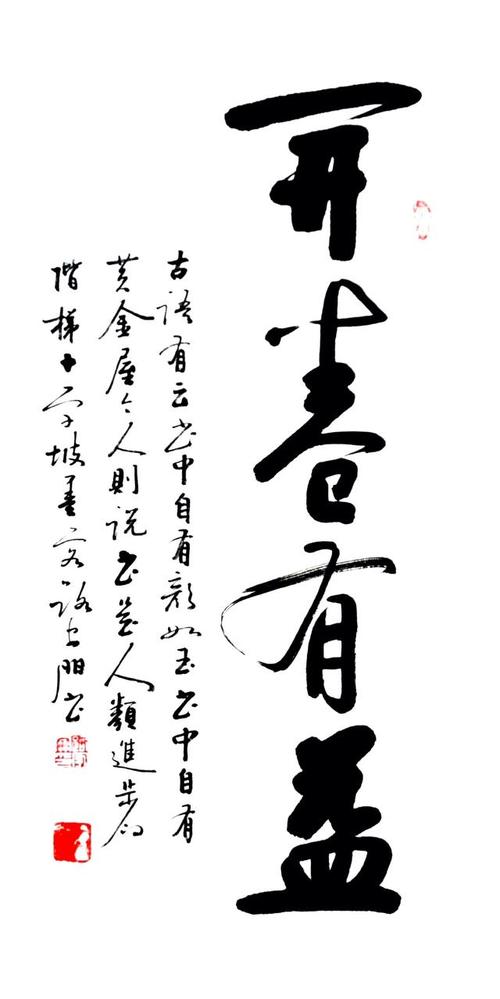 开卷有益
古語有云書中自有顏如玉書中自有
黃金屋今人則說書是人類進步的
階梯十字坡墨客路書